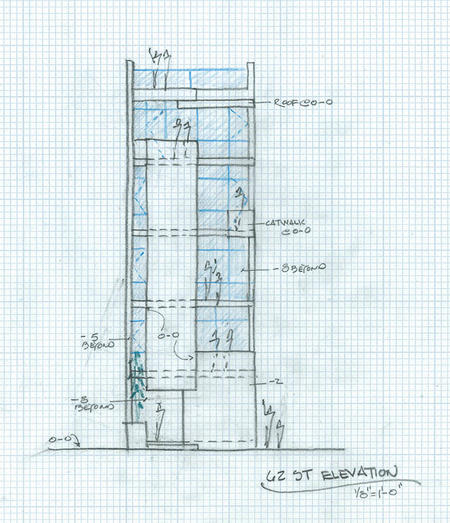 ROOF @ 0-0
CATWALK
@ 0-0
-8 BEYOND
-5
BEYOND
0-0
-2
-8
BEYOND
0-0
62 ST ELEVATION
1/8"=1'-0"